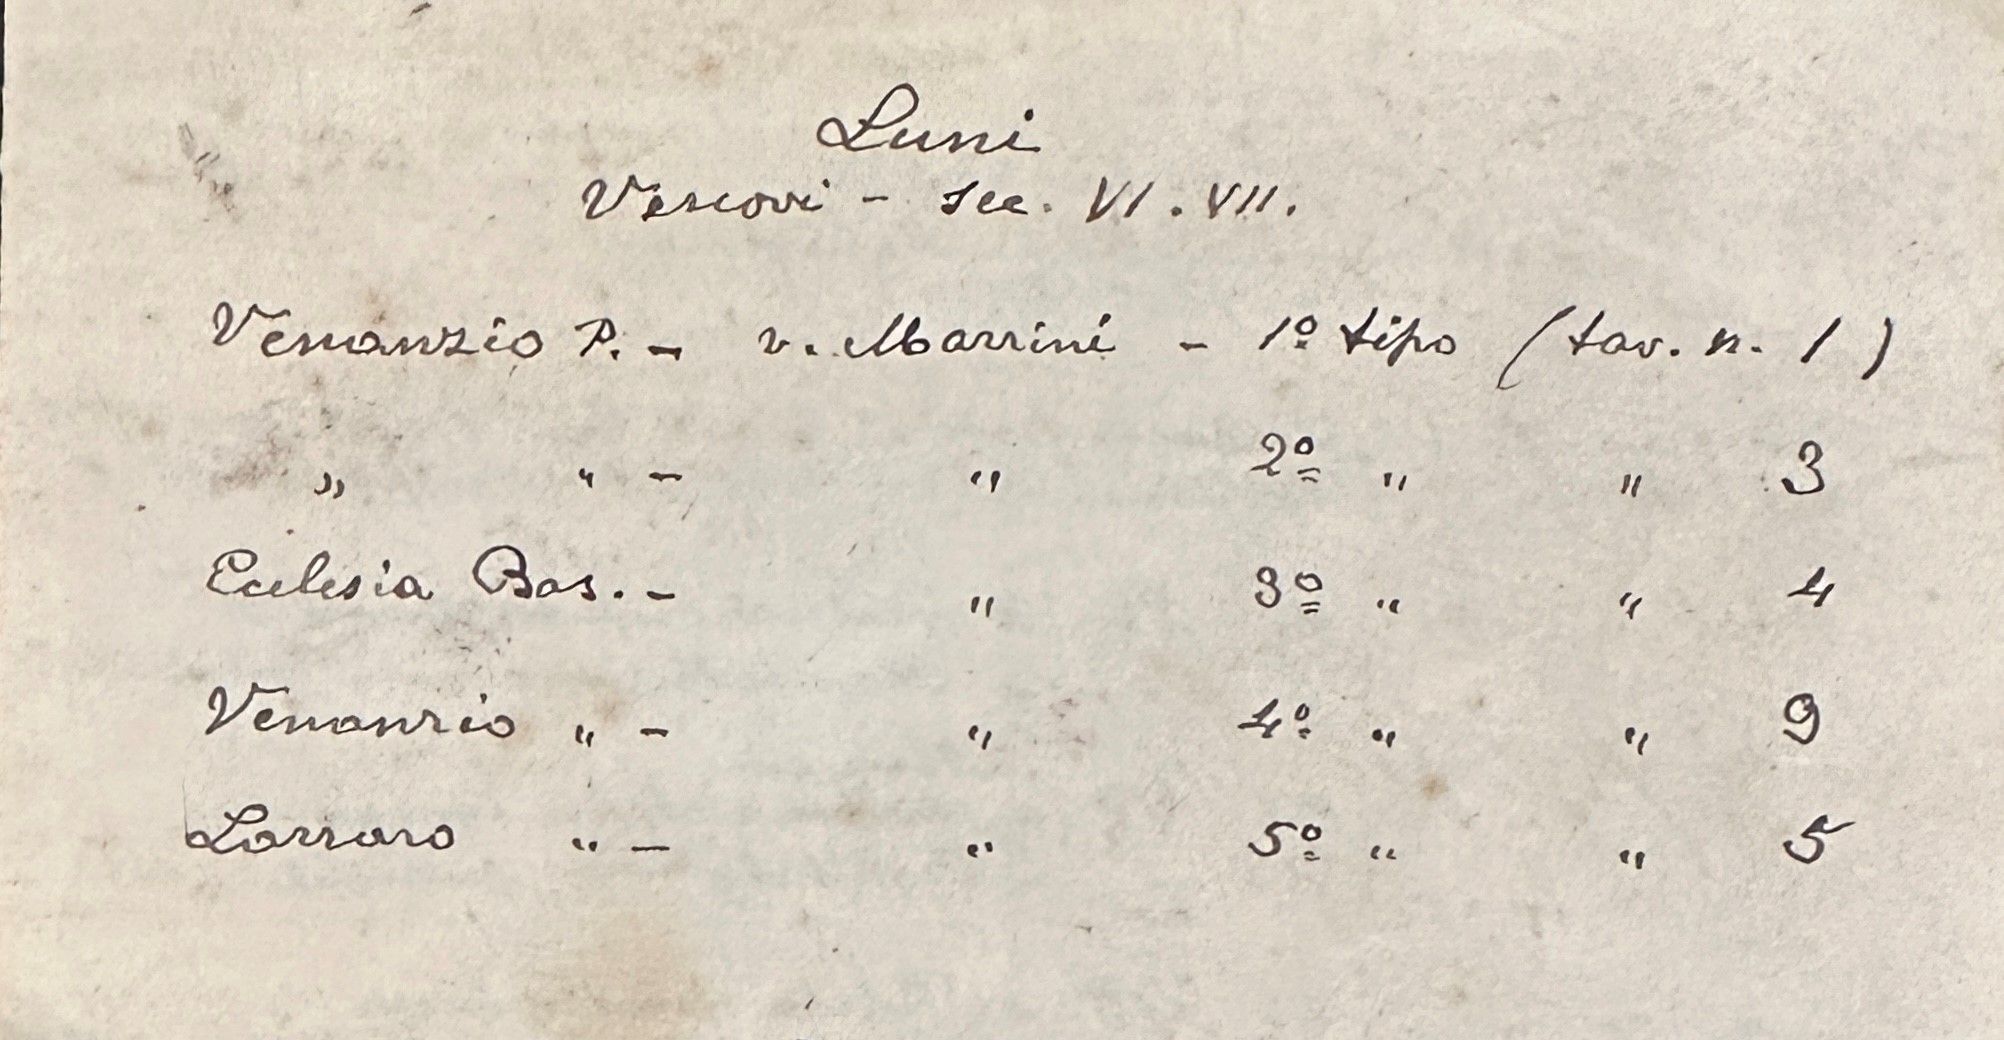 Luni
Vescovi - sec. VI. VII.
Venanzio P. - v. Massini - 1º tipo (tav. n. 1)
" " - " 2º " " 3
Ecclesia Bas. - " 3º " " 4
Venanzio " - " 4º " " 9
Lazzaro " - " 5º " " 5